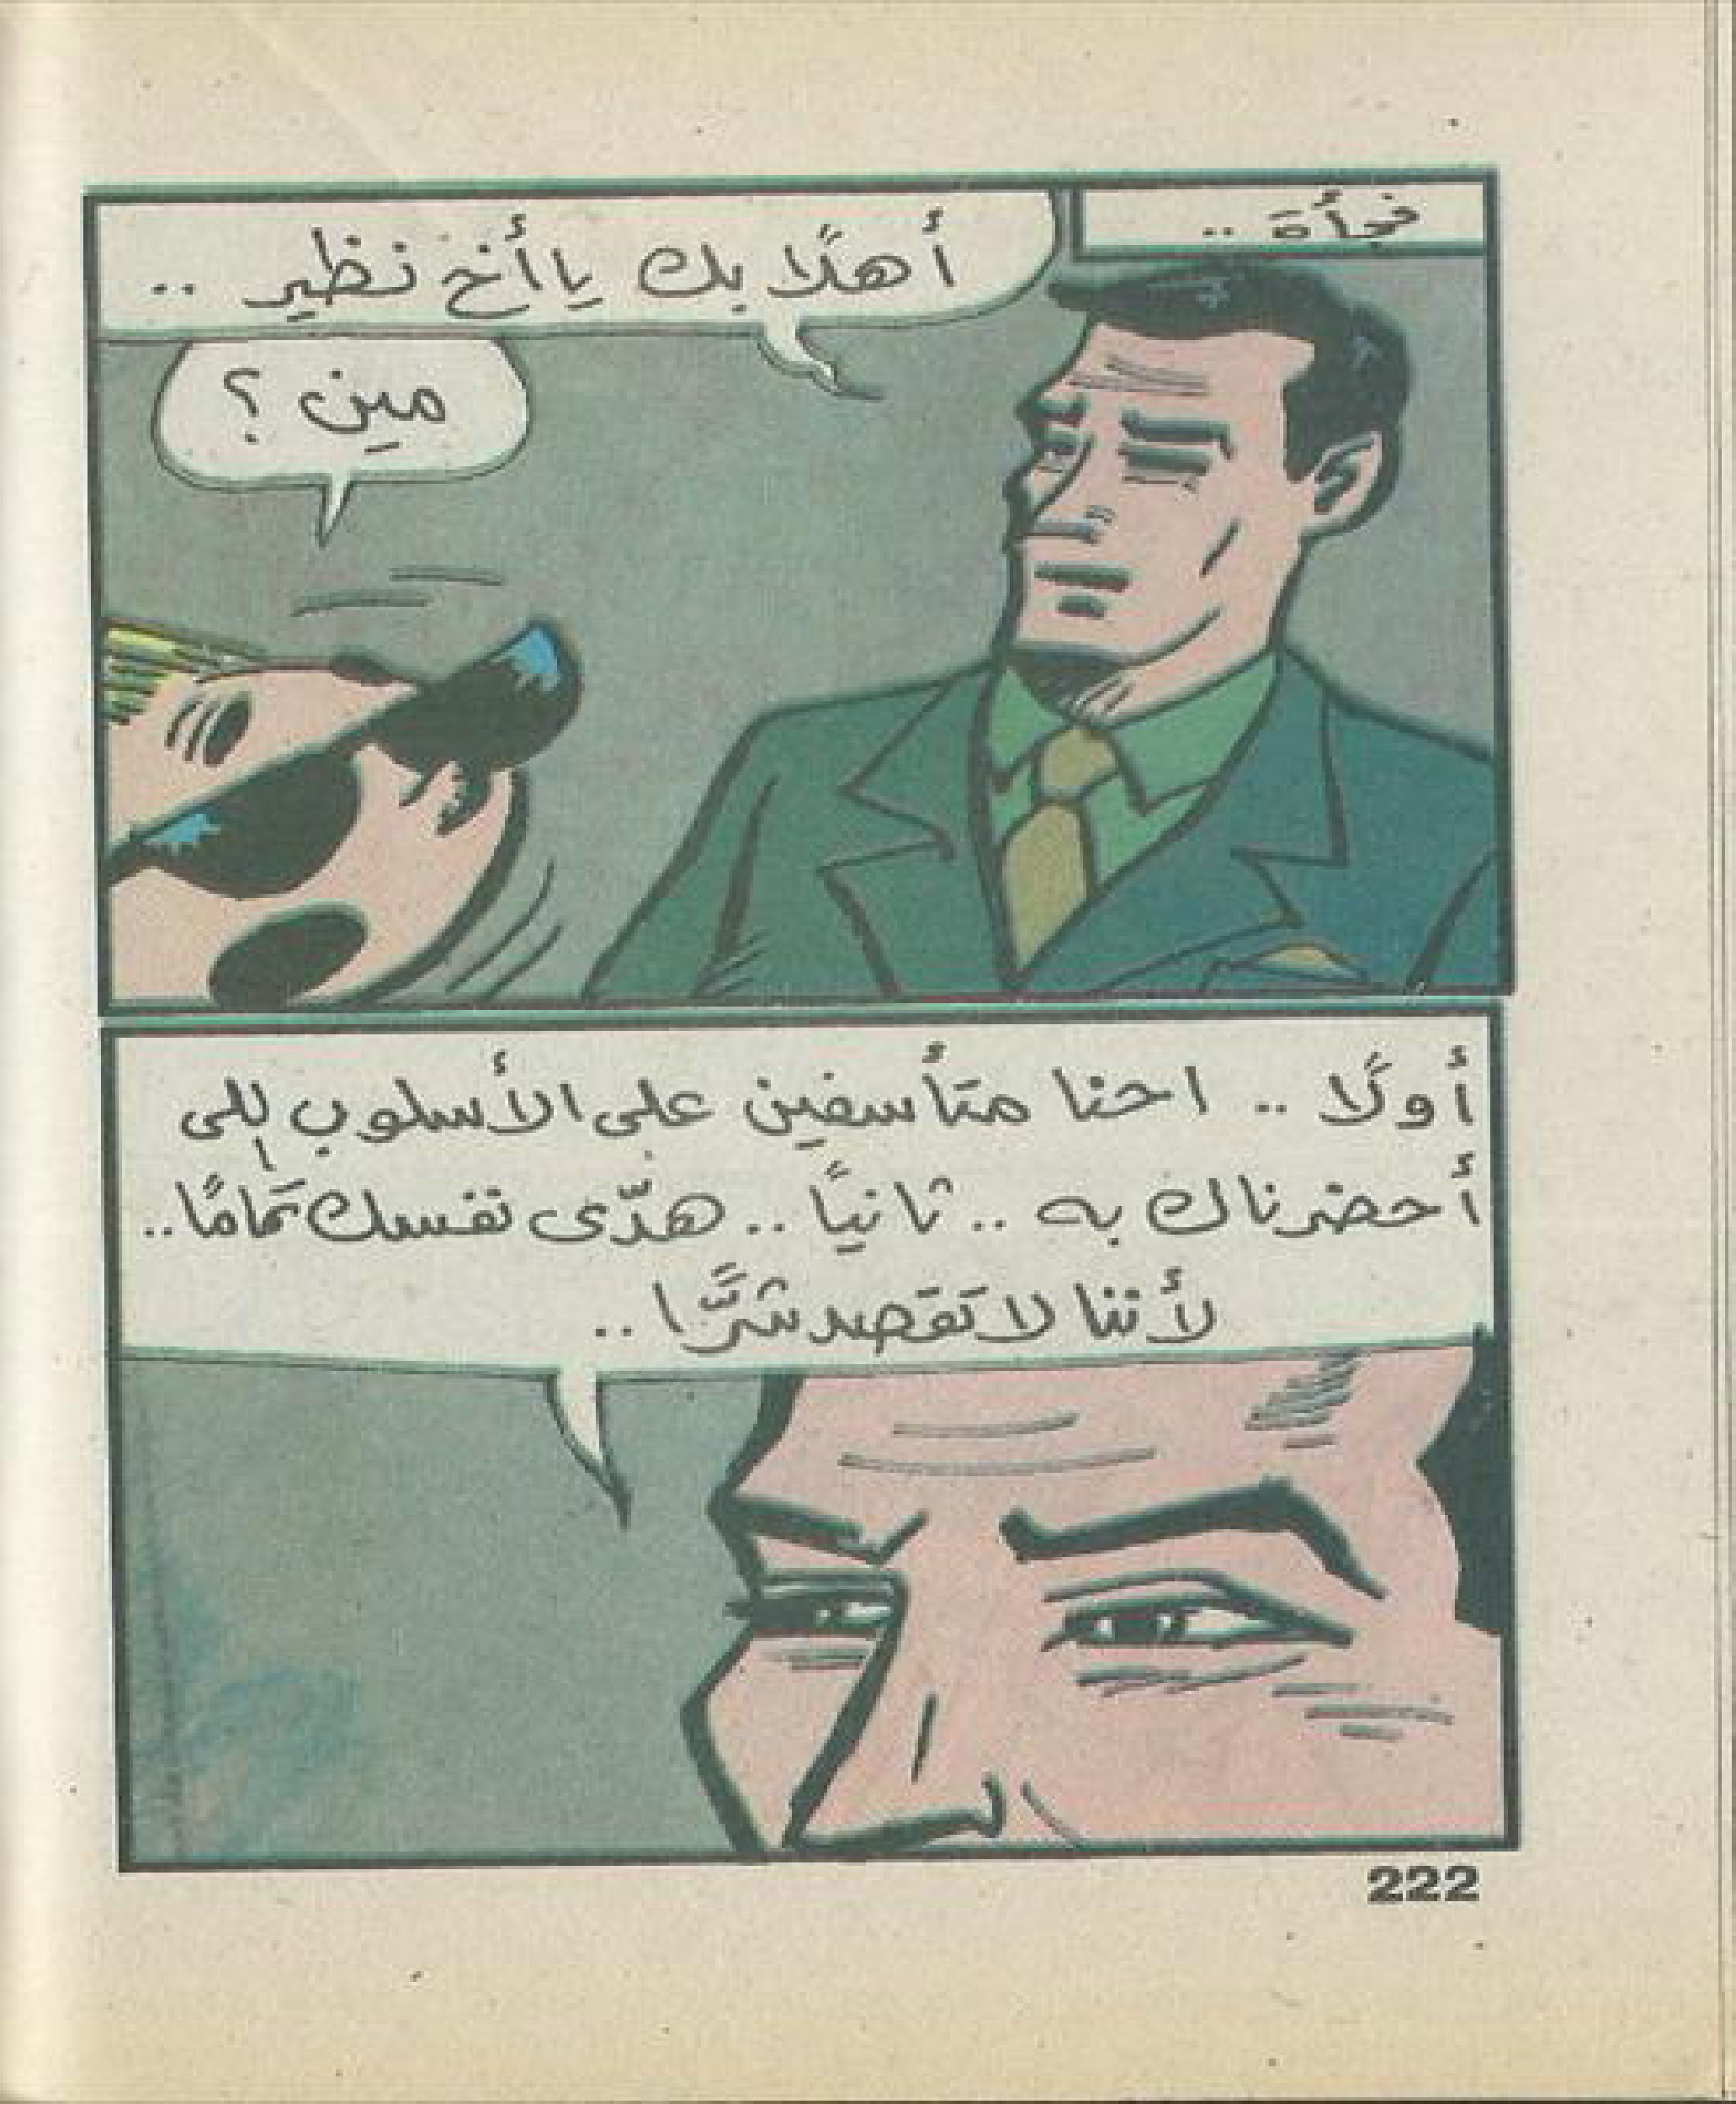 فجأة ..
أهلًا بك يا أخ نظير ..
مين ؟
أولًا .. احنا متأسفين على الأسلوب اللى
أحضرناك به .. ثانيًا .. هدّى نفسك تمامًا ..
لأننا لا نَقصد شرًّا ..
222